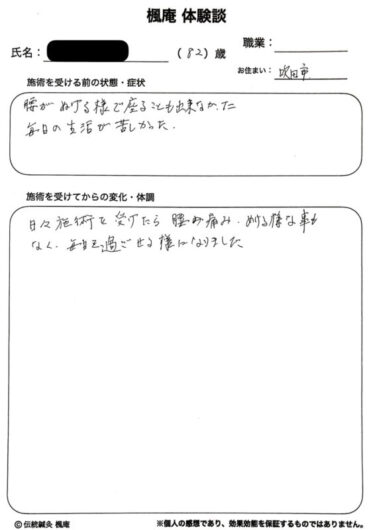 楓庵 体験談
氏名：
（82）歳
職業：
お住まい： 吹田市
施術を受ける前の状態・症状
腰がぬける様で座ることも出来なかった
毎日の生活が苦しかった．
施術を受けてからの変化・体調
日々施術を受けたら腰の痛み．ぬける様な事も
なく．毎日を過ごせる様になりました
©伝統鍼灸 楓庵
※個人の感想であり、効果効能を保証するものではありません。